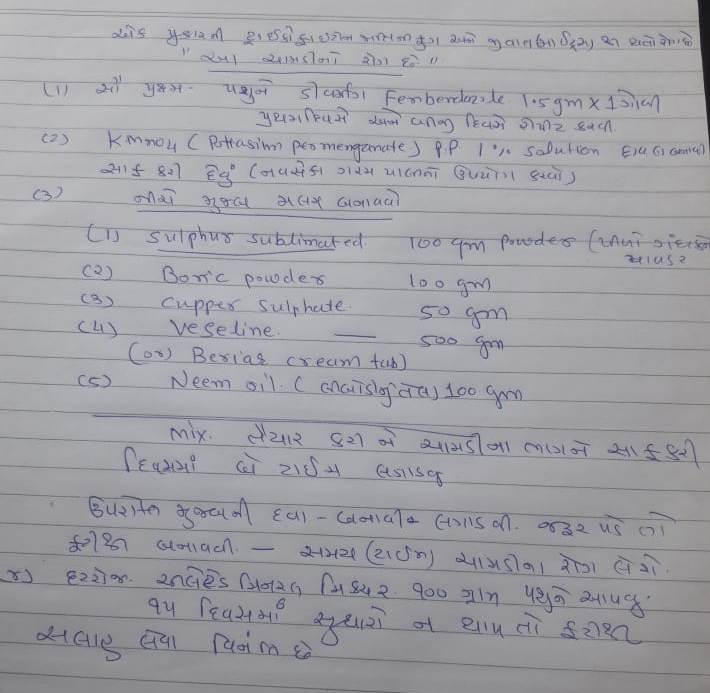 આ ચામડીનો રોગ છે"
(1) સૌ પ્રથમ - પશુને Fenbendazole 1.5gm x 1 ગોળી
પ્રથમ દિવસે અને દિવસે રીપીટ કરવી.
(2) Kmno4 (Pottasium permenganate) P.P 1% solution
સાફ કરી દેવું (નવસેકા ગરમ પાણીનો ઉપયોગ કરવો)
(3) નીચે મુજબ મલમ બનાવવો
(1) Sulphur sublimated. 100 gm Powder (
પાવડર
(2) Boric powder 100 gm
(3) Cupper sulphate. 50 gm
(4) Veseline. — 500 gm
(or) Berias cream tub)
(5) Neem oil. ( લીંબોડીનું તેલ) 100 gm
Mix. તૈયાર કરી ને ચામડીના ભાગને સાફ કરી
દિવસમાં બે ટાઈમ લગાડવુ
ઉપરોક્ત મુજબની દવા - બનાવીને લગાડવી. જરૂર પડે તો
ફરીથી બનાવવી. — સમય (ટાઈમ) ચામડીના રોગ લેશે.
૪) દરરોજ. મિનરલ મિક્ષ્ચર. ૧૦૦ ગ્રામ પશુને આપવુ.
૧૫ દિવસમાં સુધારો ન થાય તો ફરીથી
સલાહ લેવા વિનંતી છે